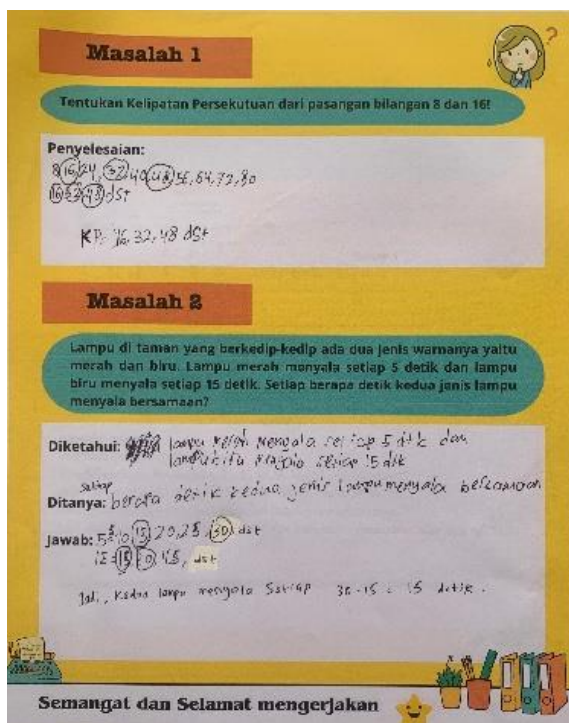 ?
Masalah 1
Tentukan Kelipatan Persekutuan dari pasangan bilangan 8 dan 16!
Penyelesaian:
8, 16, 24, 32, 40, 48, 56, 64, 72, 80
16, 32, 48, dst
KP: 16, 32, 48 dst
Masalah 2
Lampu di taman yang berkedip-kedip ada dua jenis warnanya yaitu
merah dan biru. Lampu merah menyala setiap 5 detik dan lampu
biru menyala setiap 15 detik. Setiap berapa detik kedua jenis lampu
menyala bersamaan?
Diketahui: lampu merah menyala setiap 5 dtk dan
lampu biru menyala setiap 15 dtk
setiap
Ditanya: berapa detik kedua jenis lampu menyala bersamaan
Jawab: 5= 10, 15, 20, 25, 30, dst
15 = 15, 30, 45, dst
Jadi, kedua lampu menyala setiap 30 - 15 = 15 detik.
Semangat dan Selamat mengerjakan